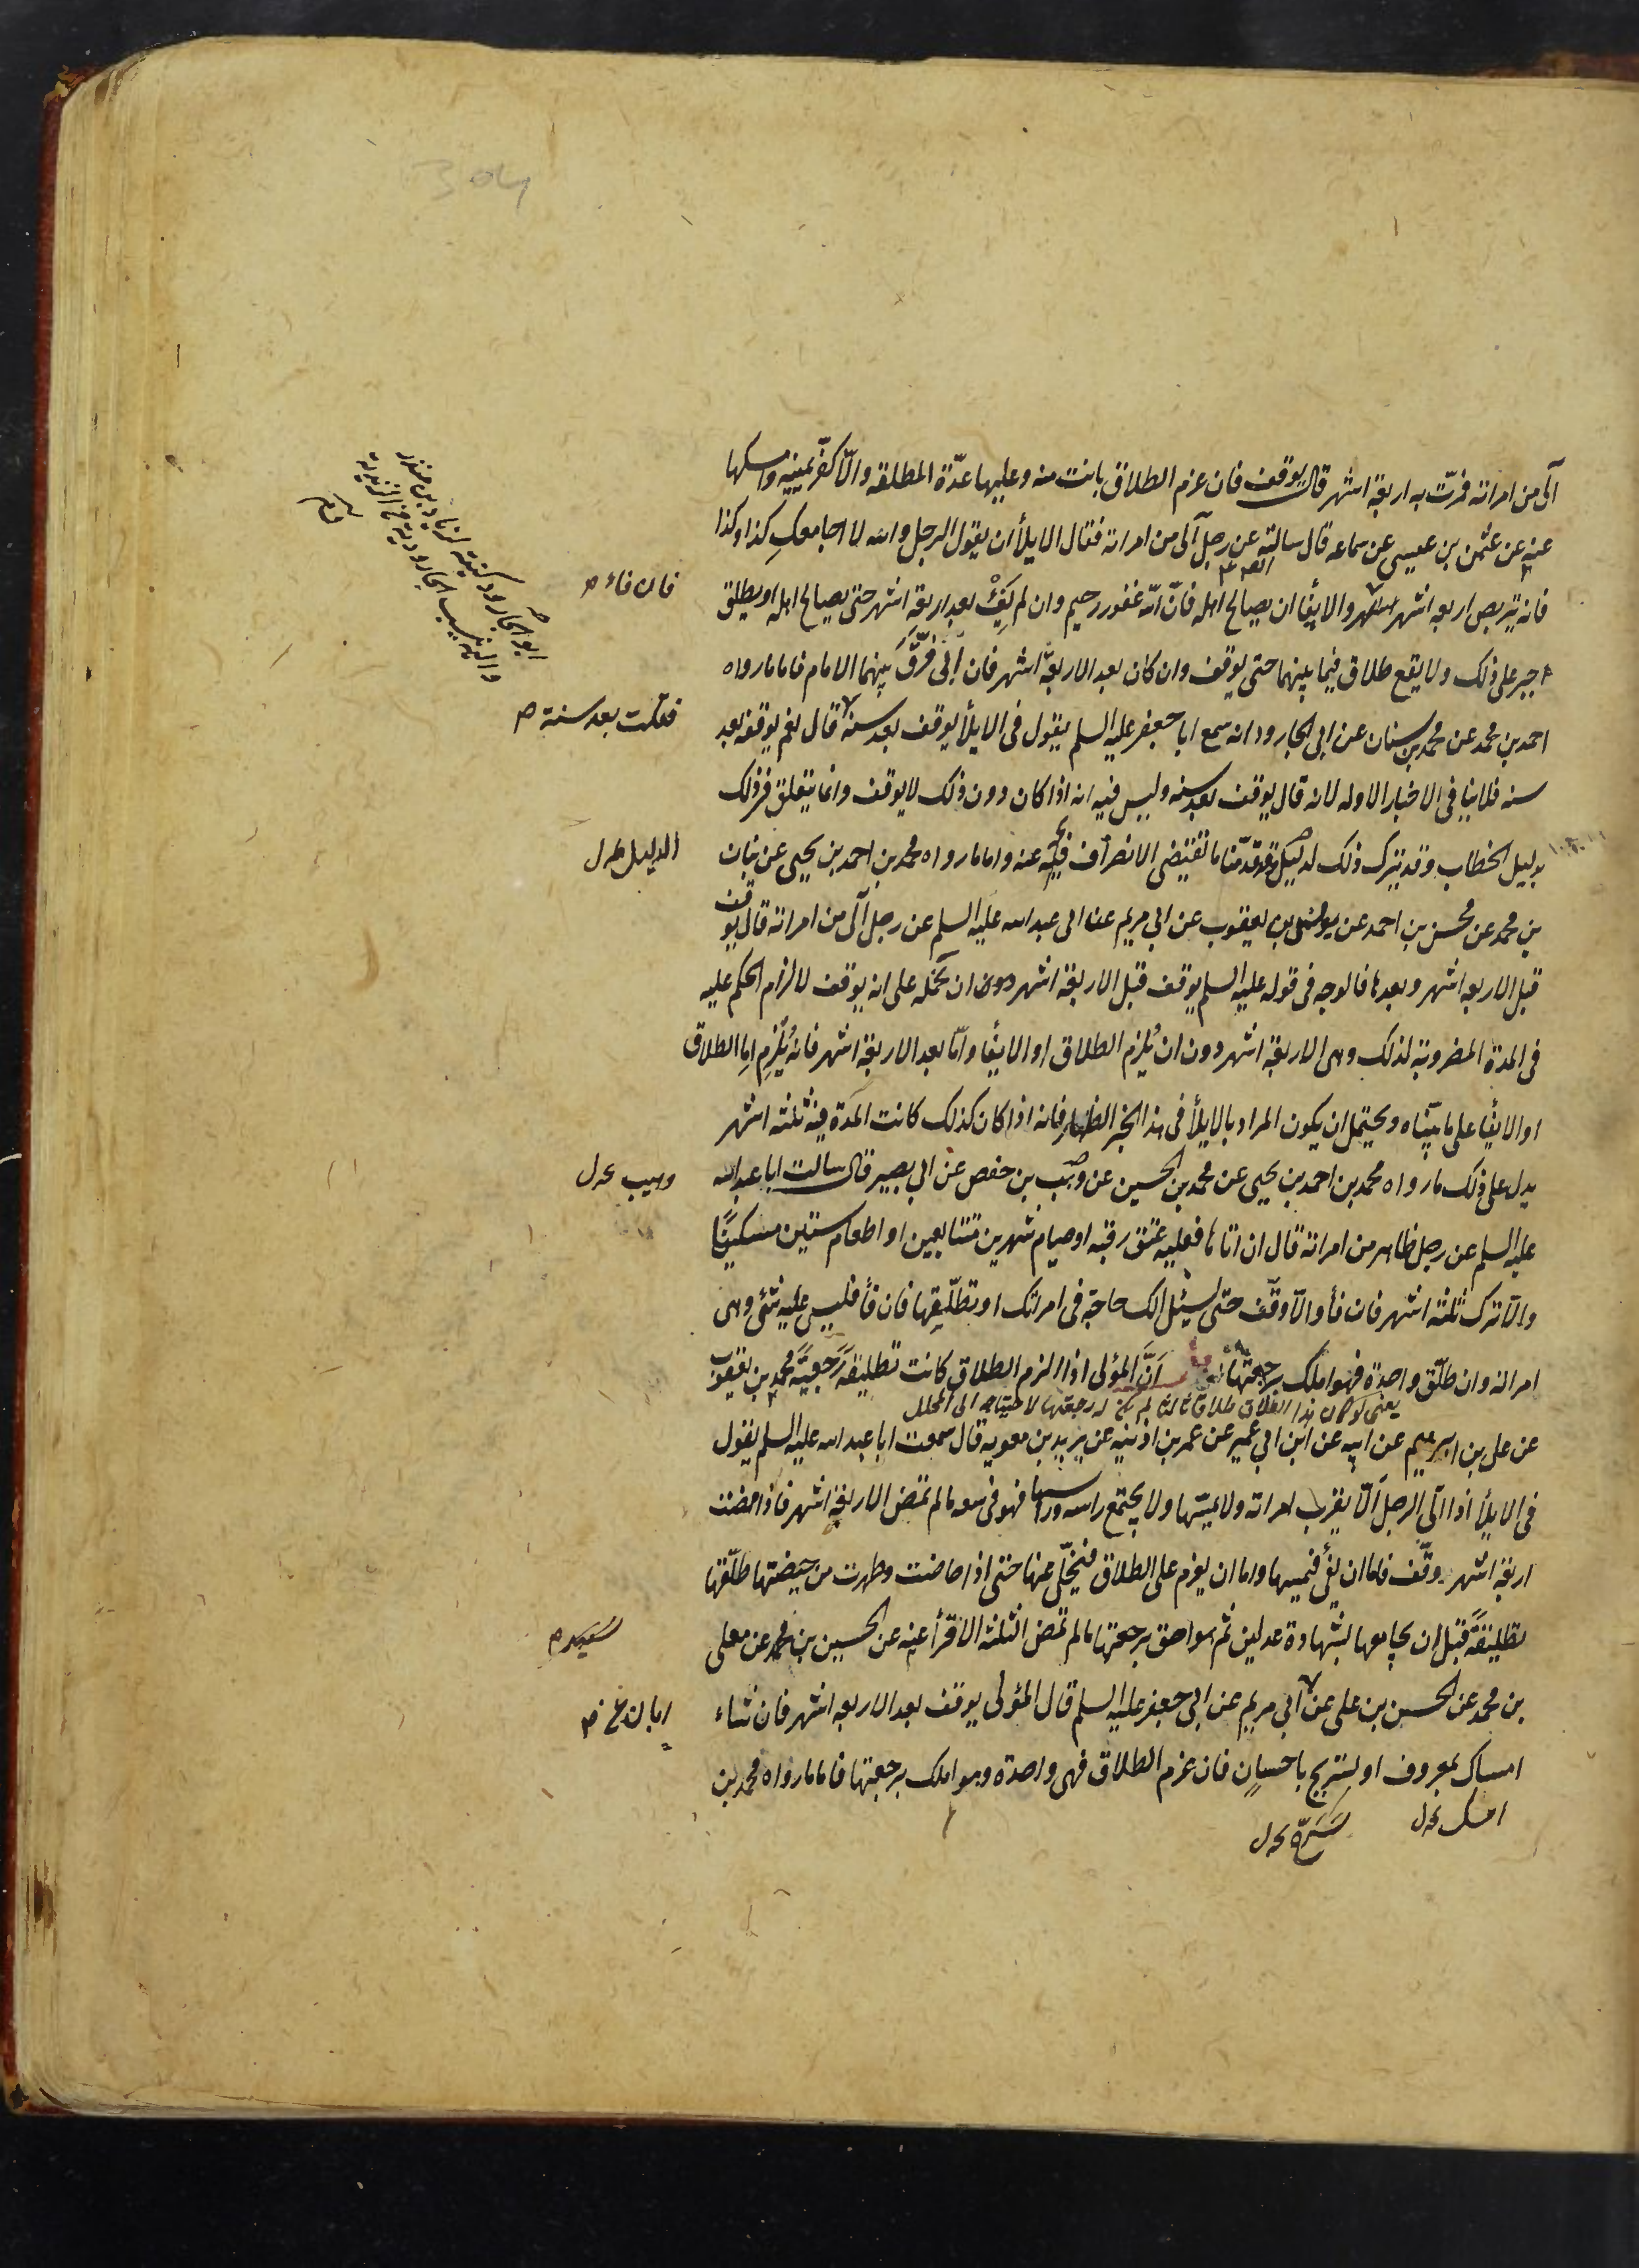 آلى من امراته فمرّت به اربعة اشهر قال يوقف فان عزم الطلاق بانت منه وعليها عدّة المطلقه والّا كفّر يمينه وامسكها
عنه عن عثمن بن عيسى عن سماعه قال سالته عن رجل آلى من امراته فقال الايلأ ان يقول الرجل والله لا اجامعكِ كذا وكذا
فانه يتربص اربعه اشهر والايفأ ان يصالح اهله فانّ الله غفور رحيم وان لم يَفِئْ بعد اربعة اشهر حتى يصالح اهله او يطلق
فان فاء م
اجبر على ذلك ولا يقع طلاق فيما بينهما حتى يوقف وان كان بعد الاربعة اشهر فان ابى فرّق بينهما الامام فاما ما رواه
احمد بن محمد عن محمد بن سنان عن ابى الجارود انه سمع ابا جعفر عليه السلم يقول فى الايلأ يوقف بعد سنة قال نعم يوقف بعد
فقلت بعد سنة م
سنه فلا ينافى الاخبار الاوله لانه قال يوقف بعد سنه وليس فيه انه اذا كان دون ذلك لا يوقف وانما يتعلق فى ذلك
بدليل الخطاب وقد يترك ذلك لدليل وقد قدّمنا ما تقتضى الانصراف عنه واما ما رواه محمد بن احمد بن يحيى عن بنان
الدليل
بن محمد عن محسن بن احمد عن يونس بن يعقوب عن ابى مريم عن ابى عبد الله عليه السلم عن رجل آلى من امراته قال يوقف
قبل الاربعه اشهر وبعدها فالوجه فى قوله عليه السلم يوقف قبل الاربعة اشهر ان نحمله على انه يوقف لالزام الحكم عليه
فى المدة المضروبة لذلك وهى الاربعة اشهر دون ان يُلزم الطلاق او الايفأ وامّا بعد الاربعة اشهر فانه يُلزم اما الطلاق
او الايفأ على ما بيّناه ويحتمل ان يكون المراد بالايلأ فى هذا الخبر الظهار فانه اذا كان كذلك كانت المدة فيه ثلثة اشهر
يدل على ذلك ما رواه محمد بن احمد بن يحيى عن محمد بن الحسين عن وهب بن حفص عن ابى بصير قال سالت ابا عبد الله
وهيب
عليه السلم عن رجل ظاهر من امراته قال ان اتاها فعليه عتق رقبه او صيام شهرين متتابعين او اطعام ستين مسكينًا
والّا ترك ثلثة اشهر فان فأ والّا وقّف حتى يسئل الك حاجة فى امراتك او تطلّقها فان فأ فليس عليه شئ وهى
امراته وان طلّق واحدة فهو املك برجعتها انَّ المؤلى اذا الزم الطلاق كانت تطليقة رجعيّة محمد بن يعقوب
يعنى لو كان هذا الطلاق طلاق ثالثا لم يكن له رجعتها لاحتياجه الى المحلل
عن على بن ابرهيم عن ابيه عن ابن ابى عمير عن عمر بن اذينه عن يزيد بن معويه قال سمعت ابا عبد الله عليه السلم يقول
فى الايلأ اذا آلى الرجل الّا يقرب امراته ولا يمسّها ولا يجتمع راسه وراسها فهو فى سعه ما لم تمض الاربعة اشهر فاذا مضت
اربعة اشهر وقّف فاما ان يفئ فيمسها واما ان يعزم على الطلاق فيخلّى عنها حتى اذا حاضت وطهرت من حيضتها طلّقها
تطليقةً قبل ان يجامعها بشهادة عدلين ثم هو احق برجعتها ما لم تمض الثلثة الاقرأ عنه عن الحسين بن محمد عن معلى
بن محمد عن الحسن بن على عن ابى مريم عن ابى جعفر عليه السلم قال المؤلى يوقف بعد الاربعه اشهر فان شاء
ابان عن م
امساك بمعروف او تسريح باحسانٍ فان عزم الطلاق فهى واحدة وهو املك برجعتها فاما ما رواه محمد بن
ابو الجارود كنيته زياد بن منذر
واليه نسب الجارودية من الزيدية